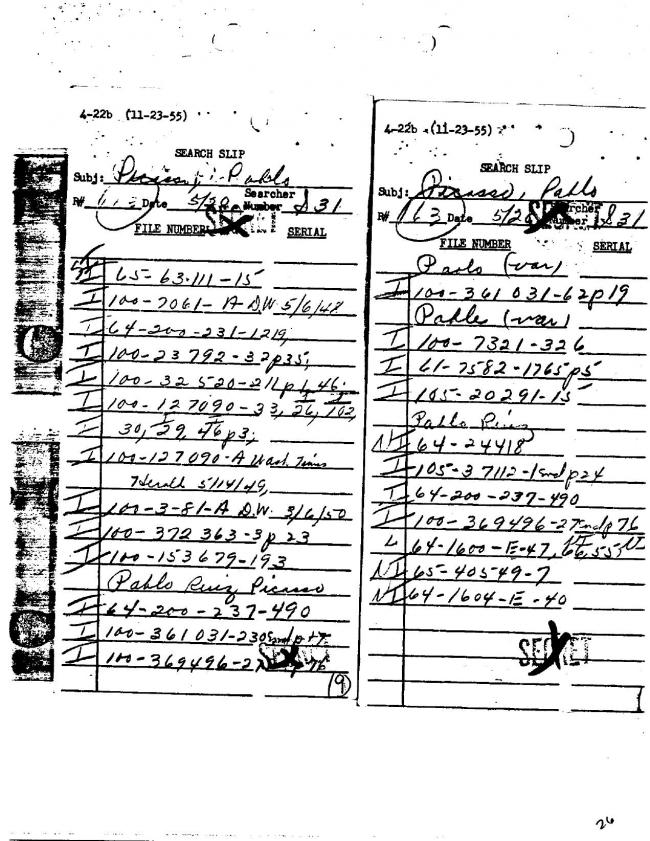 4-22b (11-23-55)
SEARCH SLIP
Subj: Picasso, Pablo
R# 113 Date 5/20 Searcher Number 831
SECRET
FILE NUMBER SERIAL
I 65-63111-15
I 100-7061-A D.W. 5/6/48
I 64-200-231-1219,
I 100-23792-32p35,
I 100-32520-211p1,46.
I 100-127090-33, 26, 102,
30, 29, 46p3;
I 100-127090-A Wash. Times
Herald 5/14/49,
I 100-3-81-A D.W. 3/6/50
I 100-372363-3p23
I 100-153679-193
Pablo Ruiz Picasso
I 64-200-237-490
I 100-361031-230
I 100-369496-27 p76
SECRET
19
4-22b (11-23-55)
SEARCH SLIP
Subj: Picasso, Pablo
R# 163 Date 5/20 Searcher Number 831
SECRET
FILE NUMBER SERIAL
Paolo (var)
I 100-361031-62p19
Pable (var)
I 100-7321-326
I 61-7582-1765p5
I 105-20291-15
Pablo Ruiz
NI 64-24418
I 105-37112-1 p24
I 64-200-237-490
I 100-369496-27 p76
64-1600-E-47, 66, 55,
NI 65-40549-7
NI 64-1604-E-40
SECRET
26